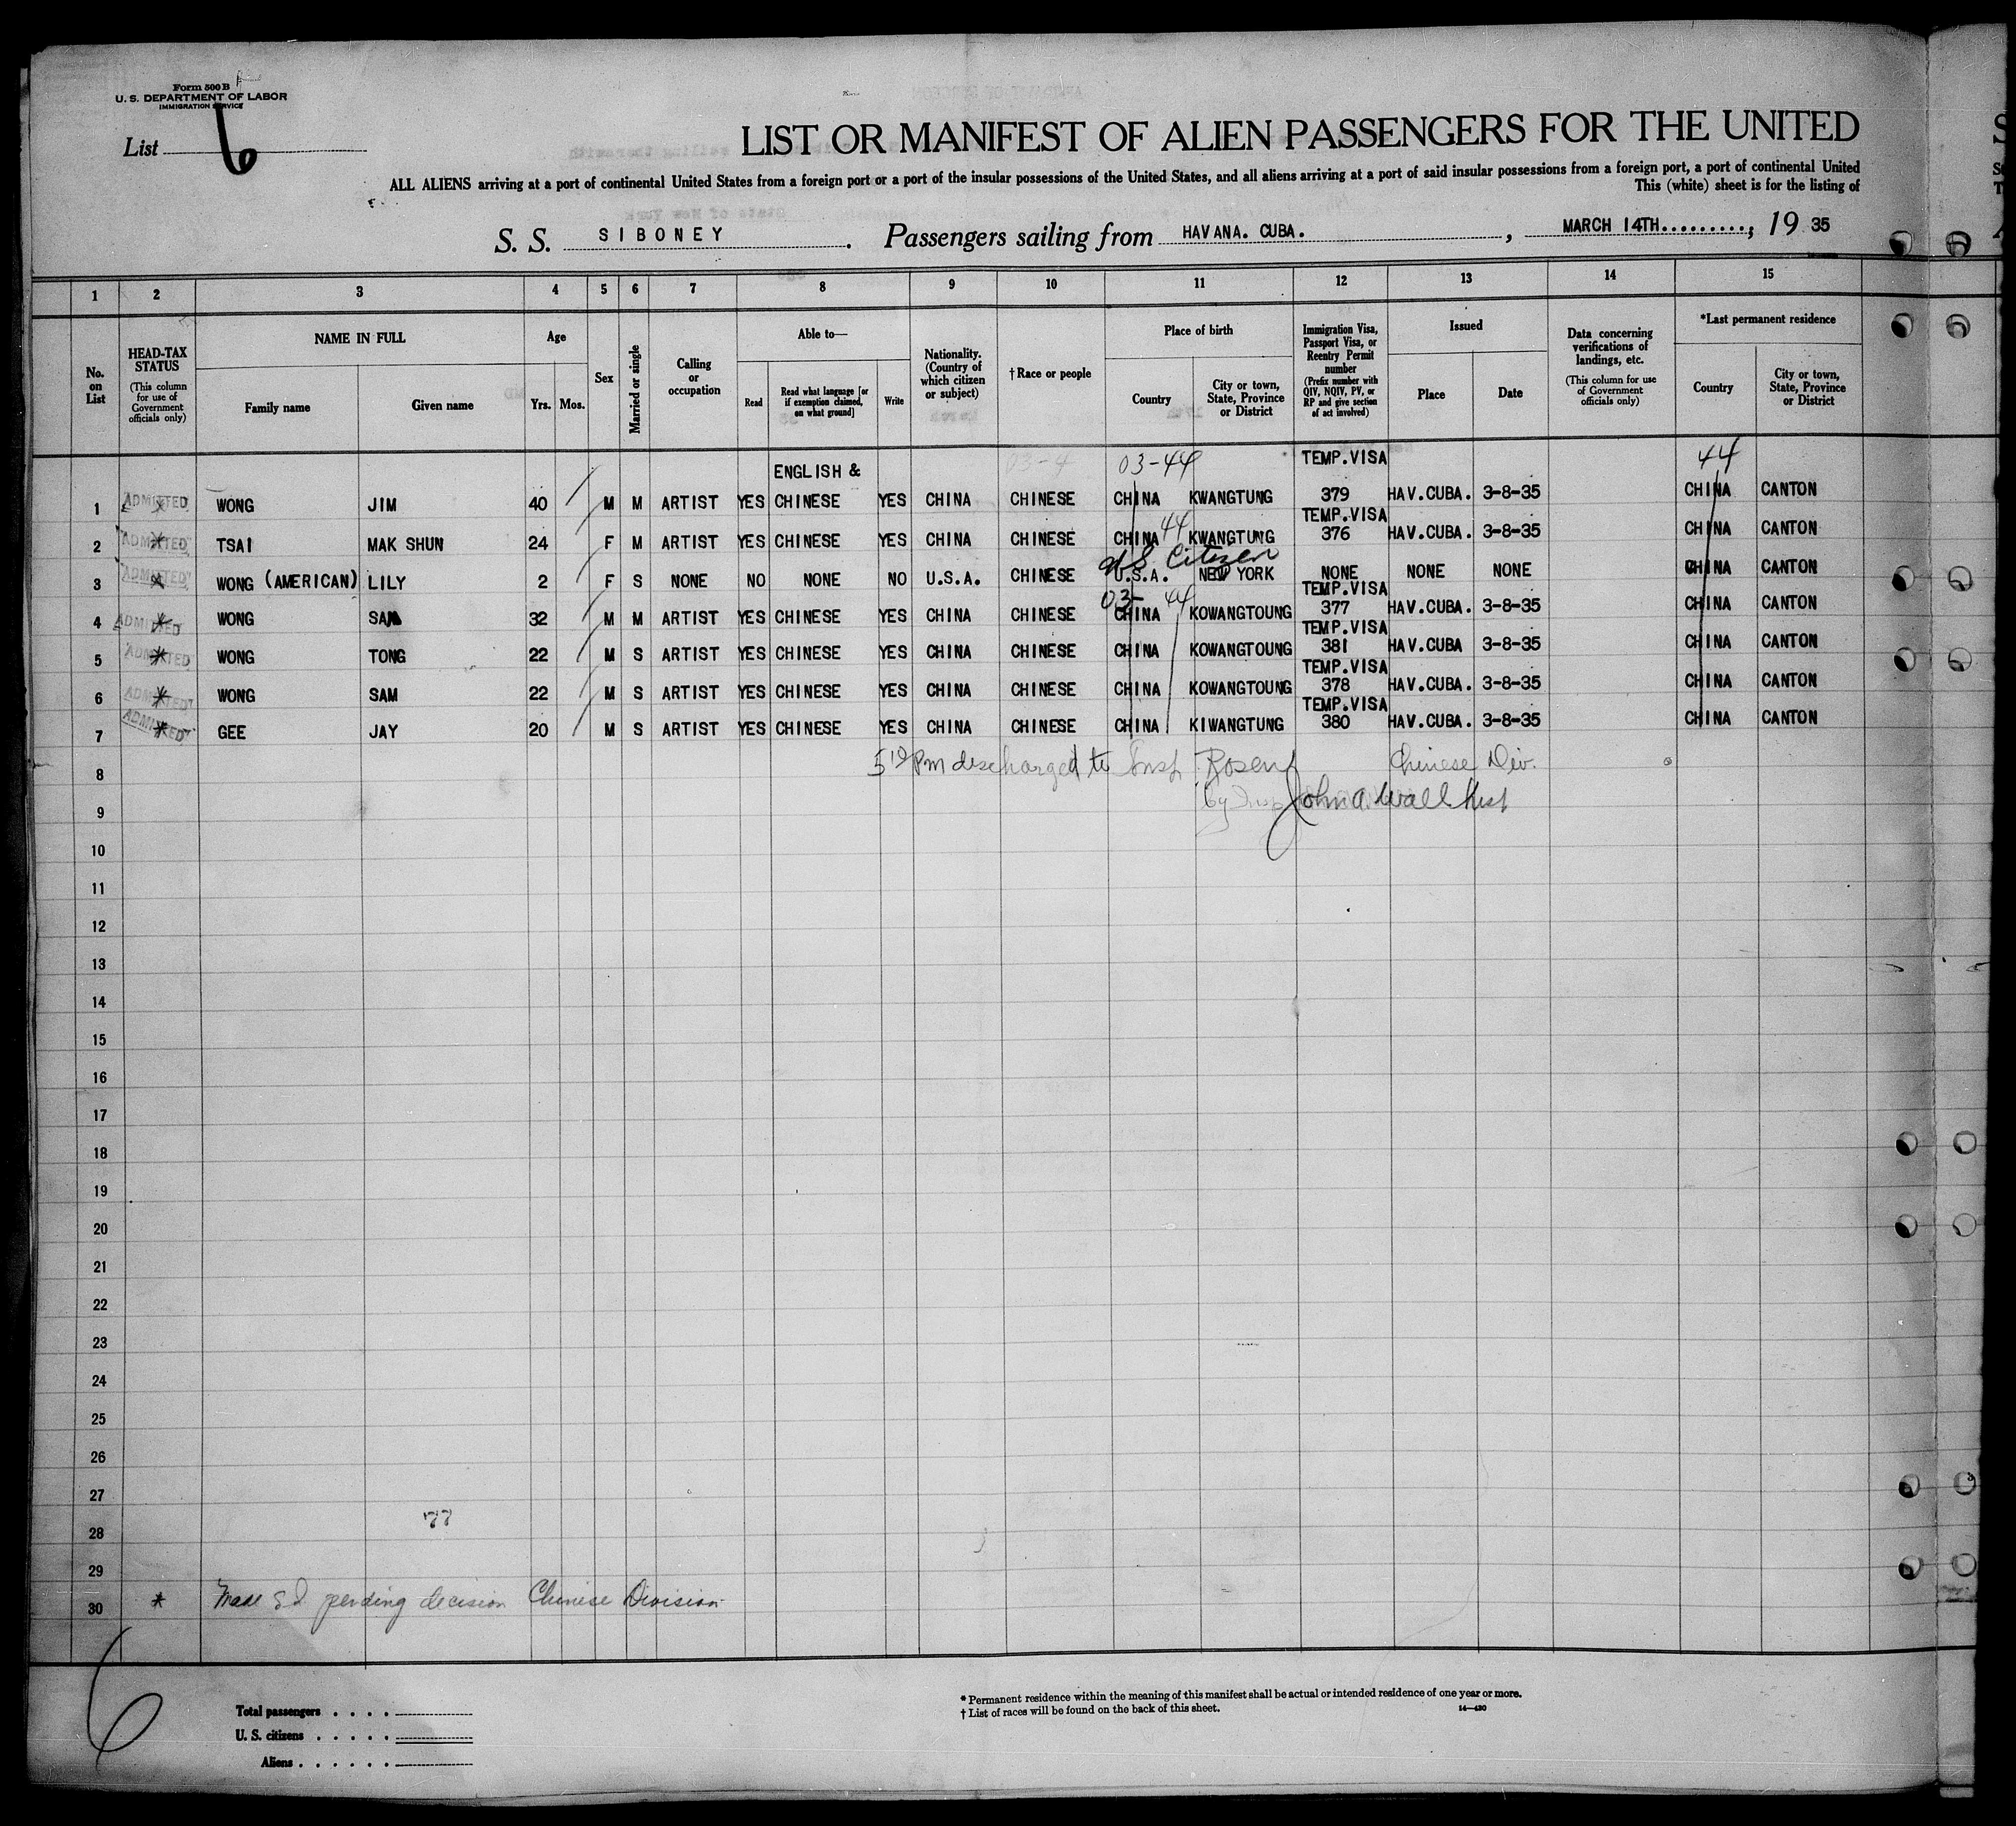 Form 500 B
U. S. DEPARTMENT OF LABOR
IMMIGRATION SERVICE
List 6
LIST OR MANIFEST OF ALIEN PASSENGERS FOR THE UNITED
ALL ALIENS arriving at a port of continental United States from a foreign port or a port of the insular possessions of the United States, and all aliens arriving at a port of said insular possessions from a foreign port, a port of continental United
This (white) sheet is for the listing of
S. S. SIBONEY. Passengers sailing from HAVANA. CUBA. , MARCH 14TH........., 19 35
1 2 3 4 5 6 7 8 9 10 11 12 13 14 15
No. on List
HEAD-TAX STATUS (This column for use of Government officials only)
NAME IN FULL Family name Given name
Age Yrs. Mos.
Sex
Married or single
Calling or occupation
Able to— Read Read what language [or if exemption claimed, on what ground] Write
Nationality. (Country of which citizen or subject)
†Race or people
Place of birth Country City or town, State, Province or District
Immigration Visa, Passport Visa, or Reentry Permit number (Prefix number with QIV, NQIV, PV, or RP and give section of act involved)
Issued Place Date
Data concerning verifications of landings, etc. (This column for use of Government officials only)
*Last permanent residence Country City or town, State, Province or District
ENGLISH & 03-4 03-44 TEMP.VISA 44
1 ADMITTED WONG JIM 40 M M ARTIST YES CHINESE YES CHINA CHINESE CHINA KWANGTUNG 379 HAV.CUBA. 3-8-35 CHINA CANTON
44 TEMP.VISA
2 ADMITTED TSAI MAK SHUN 24 F M ARTIST YES CHINESE YES CHINA CHINESE CHINA KWANGTUNG 376 HAV.CUBA. 3-8-35 CHINA CANTON
U.S. Citizen
3 ADMITTED WONG (AMERICAN) LILY 2 F S NONE NO NONE NO U.S.A. CHINESE U.S.A. NEW YORK NONE NONE NONE CHINA CANTON
03- 44 TEMP.VISA
4 ADMITTED WONG SAM 32 M M ARTIST YES CHINESE YES CHINA CHINESE CHINA KOWANGTOUNG 377 HAV.CUBA. 3-8-35 CHINA CANTON
TEMP.VISA
5 ADMITTED WONG TONG 22 M S ARTIST YES CHINESE YES CHINA CHINESE CHINA KOWANGTOUNG 381 HAV.CUBA 3-8-35 CHINA CANTON
TEMP.VISA
6 ADMITTED WONG SAM 22 M S ARTIST YES CHINESE YES CHINA CHINESE CHINA KOWANGTOUNG 378 HAV.CUBA. 3-8-35 CHINA CANTON
TEMP.VISA
7 ADMITTED GEE JAY 20 M S ARTIST YES CHINESE YES CHINA CHINESE CHINA KIWANGTUNG 380 HAV.CUBA. 3-8-35 CHINA CANTON
8 Pm discharged to Insp Chinese Div.
9 by Insp John A. Wall Insp
10
11
12
13
14
15
16
17
18
19
20
21
22
23
24
25
26
27
77
28
29
30 * Made S.I. pending decision Chinese Division
6
Total passengers . . . .
U. S. citizens . . . . .
Aliens . . . . . .
* Permanent residence within the meaning of this manifest shall be actual or intended residence of one year or more.
† List of races will be found on the back of this sheet. 14—430